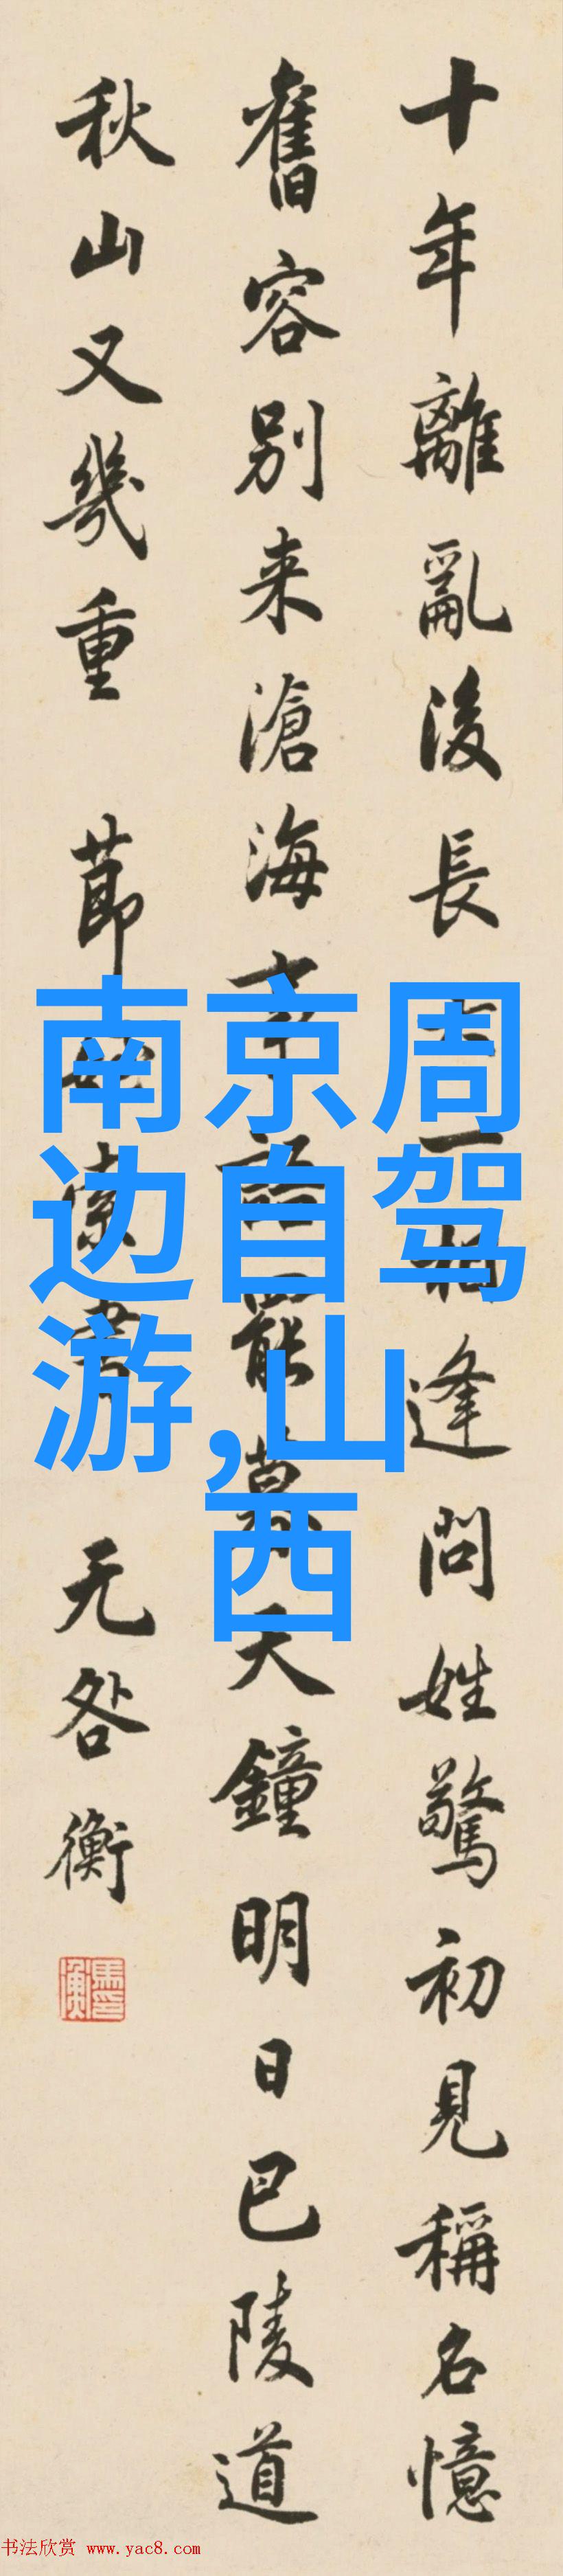 十年離亂後長大一相逢問姓驚初見稱名憶
舊容別来滄海事語罷暮天鐘明日巴陵道
秋山又幾重 節 索書 无咎 衡
南京周
边自驾
游,山
西
书法欣赏 www.yac8.com